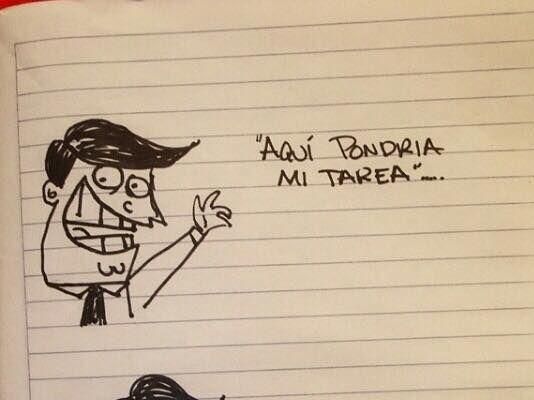 "AQUÍ PONDRIA
MI TAREA"....